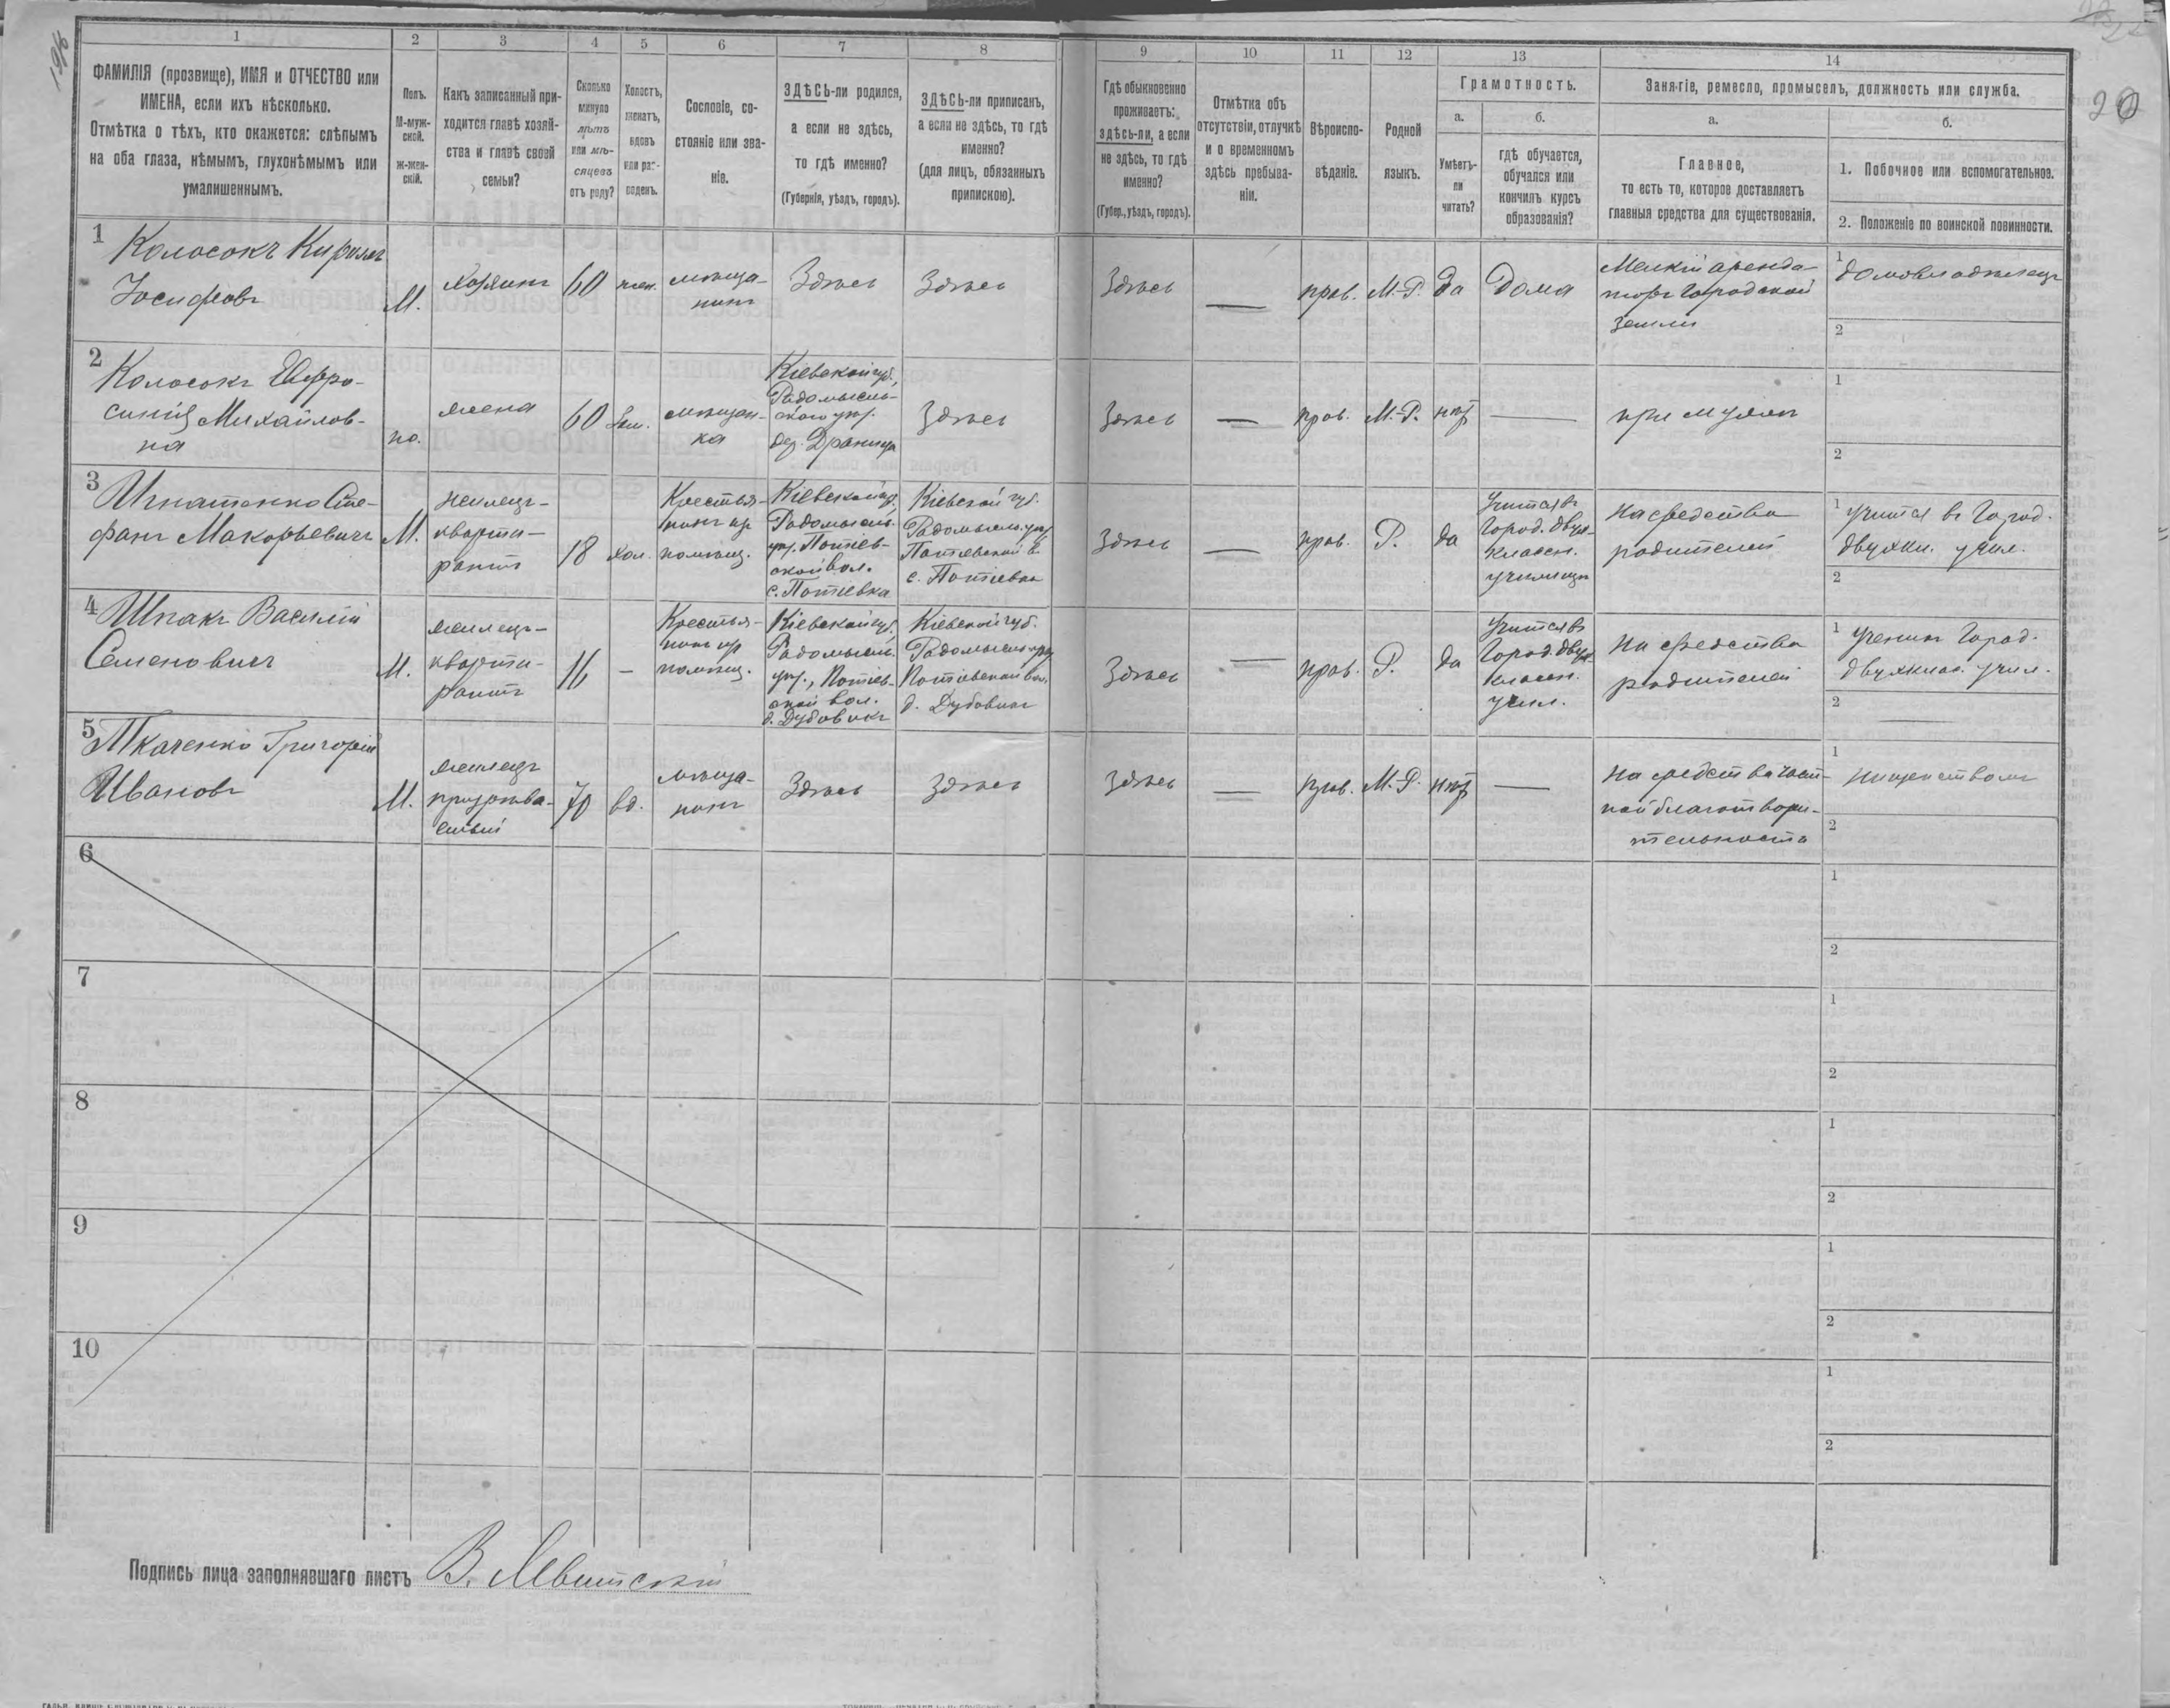 1 2 3 4 5 6 7 8 9 10 11 12 13 14
ФАМИЛІЯ (прозвище), ИМЯ и ОТЧЕСТВО или
ИМЕНА, если ихъ нѣсколько.
Отмѣтка о тѣхъ, кто окажется: слѣпымъ
на оба глаза, нѣмымъ, глухонѣмымъ или
умалишеннымъ.
Полъ.
М-муж-
ской.
ж-жен-
скій.
Какъ записанный при-
ходится главѣ хозяй-
ства и главѣ своей
семьи?
Сколько
минуло
лѣтъ
или мѣ-
сяцевъ
отъ роду?
Холостъ,
женатъ,
вдовъ
или раз-
веденъ.
Сословіе, со-
стояніе или зва-
ніе.
ЗДѢСЬ-ли родился,
а если не здѣсь,
то гдѣ именно?
(Губернія, уѣздъ, городъ).
ЗДѢСЬ-ли приписанъ,
а если не здѣсь, то гдѣ
именно?
(для лицъ, обязанныхъ
припискою).
Гдѣ обыкновенно
проживаетъ:
здѣсь-ли, а если
не здѣсь, то гдѣ
именно?
(Губер., уѣздъ, городъ).
Отмѣтка объ
отсутствіи, отлучкѣ
и о временномъ
здѣсь пребыва-
ніи.
Вѣроиспо-
вѣданіе.
Родной
языкъ.
Грамотность.
а.
Умѣетъ-
ли
читать?
б.
гдѣ обучается,
обучался или
кончилъ курсъ
образованія?
Занятіе, ремесло, промыселъ, должность или служба.
а.
Главное,
то есть то, которое доставляетъ
главныя средства для существованія.
б.
1. Побочное или вспомогательное.
2. Положеніе по воинской повинности.
1
Колосокъ Кириллъ
Іосифовъ
М.
хозяинъ
60
жен.
мѣща-
нинъ
Здѣсь
Здѣсь
Здѣсь
—
прав.
М.-Р.
да
дома
Мелкій аренда-
торъ городской
земли
1 домовладѣлецъ
2
2
Колосокъ Евфро-
синія Михайлов-
на
ж.
жена
60
зам.
мѣщан-
ка
Кіевской губ.,
Радомысль-
скаго уѣз.
Здѣсь
Здѣсь
—
прав.
М.-Р.
нѣтъ
—
при мужѣ
1
2
3
Игнатенко Сте-
фанъ Макарьевичъ
М.
жилецъ-
кварти-
рантъ
18
хол.
Крестья-
нинъ из
помѣщ.
Кіевской губ.
Радомысль.
уѣз. Потіев-
ской вол.
с. Потіевка
Кіевской губ.
Радомысль. уѣз.
Потіевской в.
с. Потіевка
Здѣсь
—
прав.
Р.
да
Учится въ
Город. двух-
классн.
училищѣ
На средства
родителей
1 учится въ Город.
двухкл. учил.
2
4
Шпакъ Василій
Семеновичъ
М.
жилецъ-
кварти-
рантъ
16
—
Крестья-
нинъ из
помѣщ.
Кіевской губ.
Радомысл.
уѣз., Потіев-
ской вол.
д. Дубовикъ
Кіевской губ.
Радомысл. уѣз.
Потіевской вол.
д. Дубовикъ
Здѣсь
—
прав.
Р.
да
Учится въ
Город. двух-
классн.
учил.
На средства
родителей
1 ученикъ Город.
двухклас. учил.
2
5
Ткаченко Григорій
Ивановъ
М.
жилецъ
призрѣва-
емый
70
вд.
мѣща-
нинъ
Здѣсь
Здѣсь
Здѣсь
—
прав.
М.-Р.
нѣтъ
—
На средства част-
ной благотвори-
тельности
1 нищенствомъ
2
6
1
2
7
1
2
8
1
2
9
1
2
10
1
2
Подпись лица заполнявшаго листъ